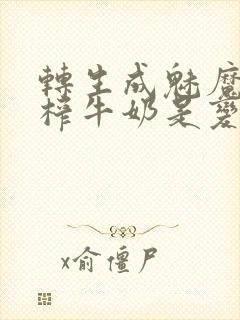 轉生成魅魔
榨牛奶是變
x俞僵尸